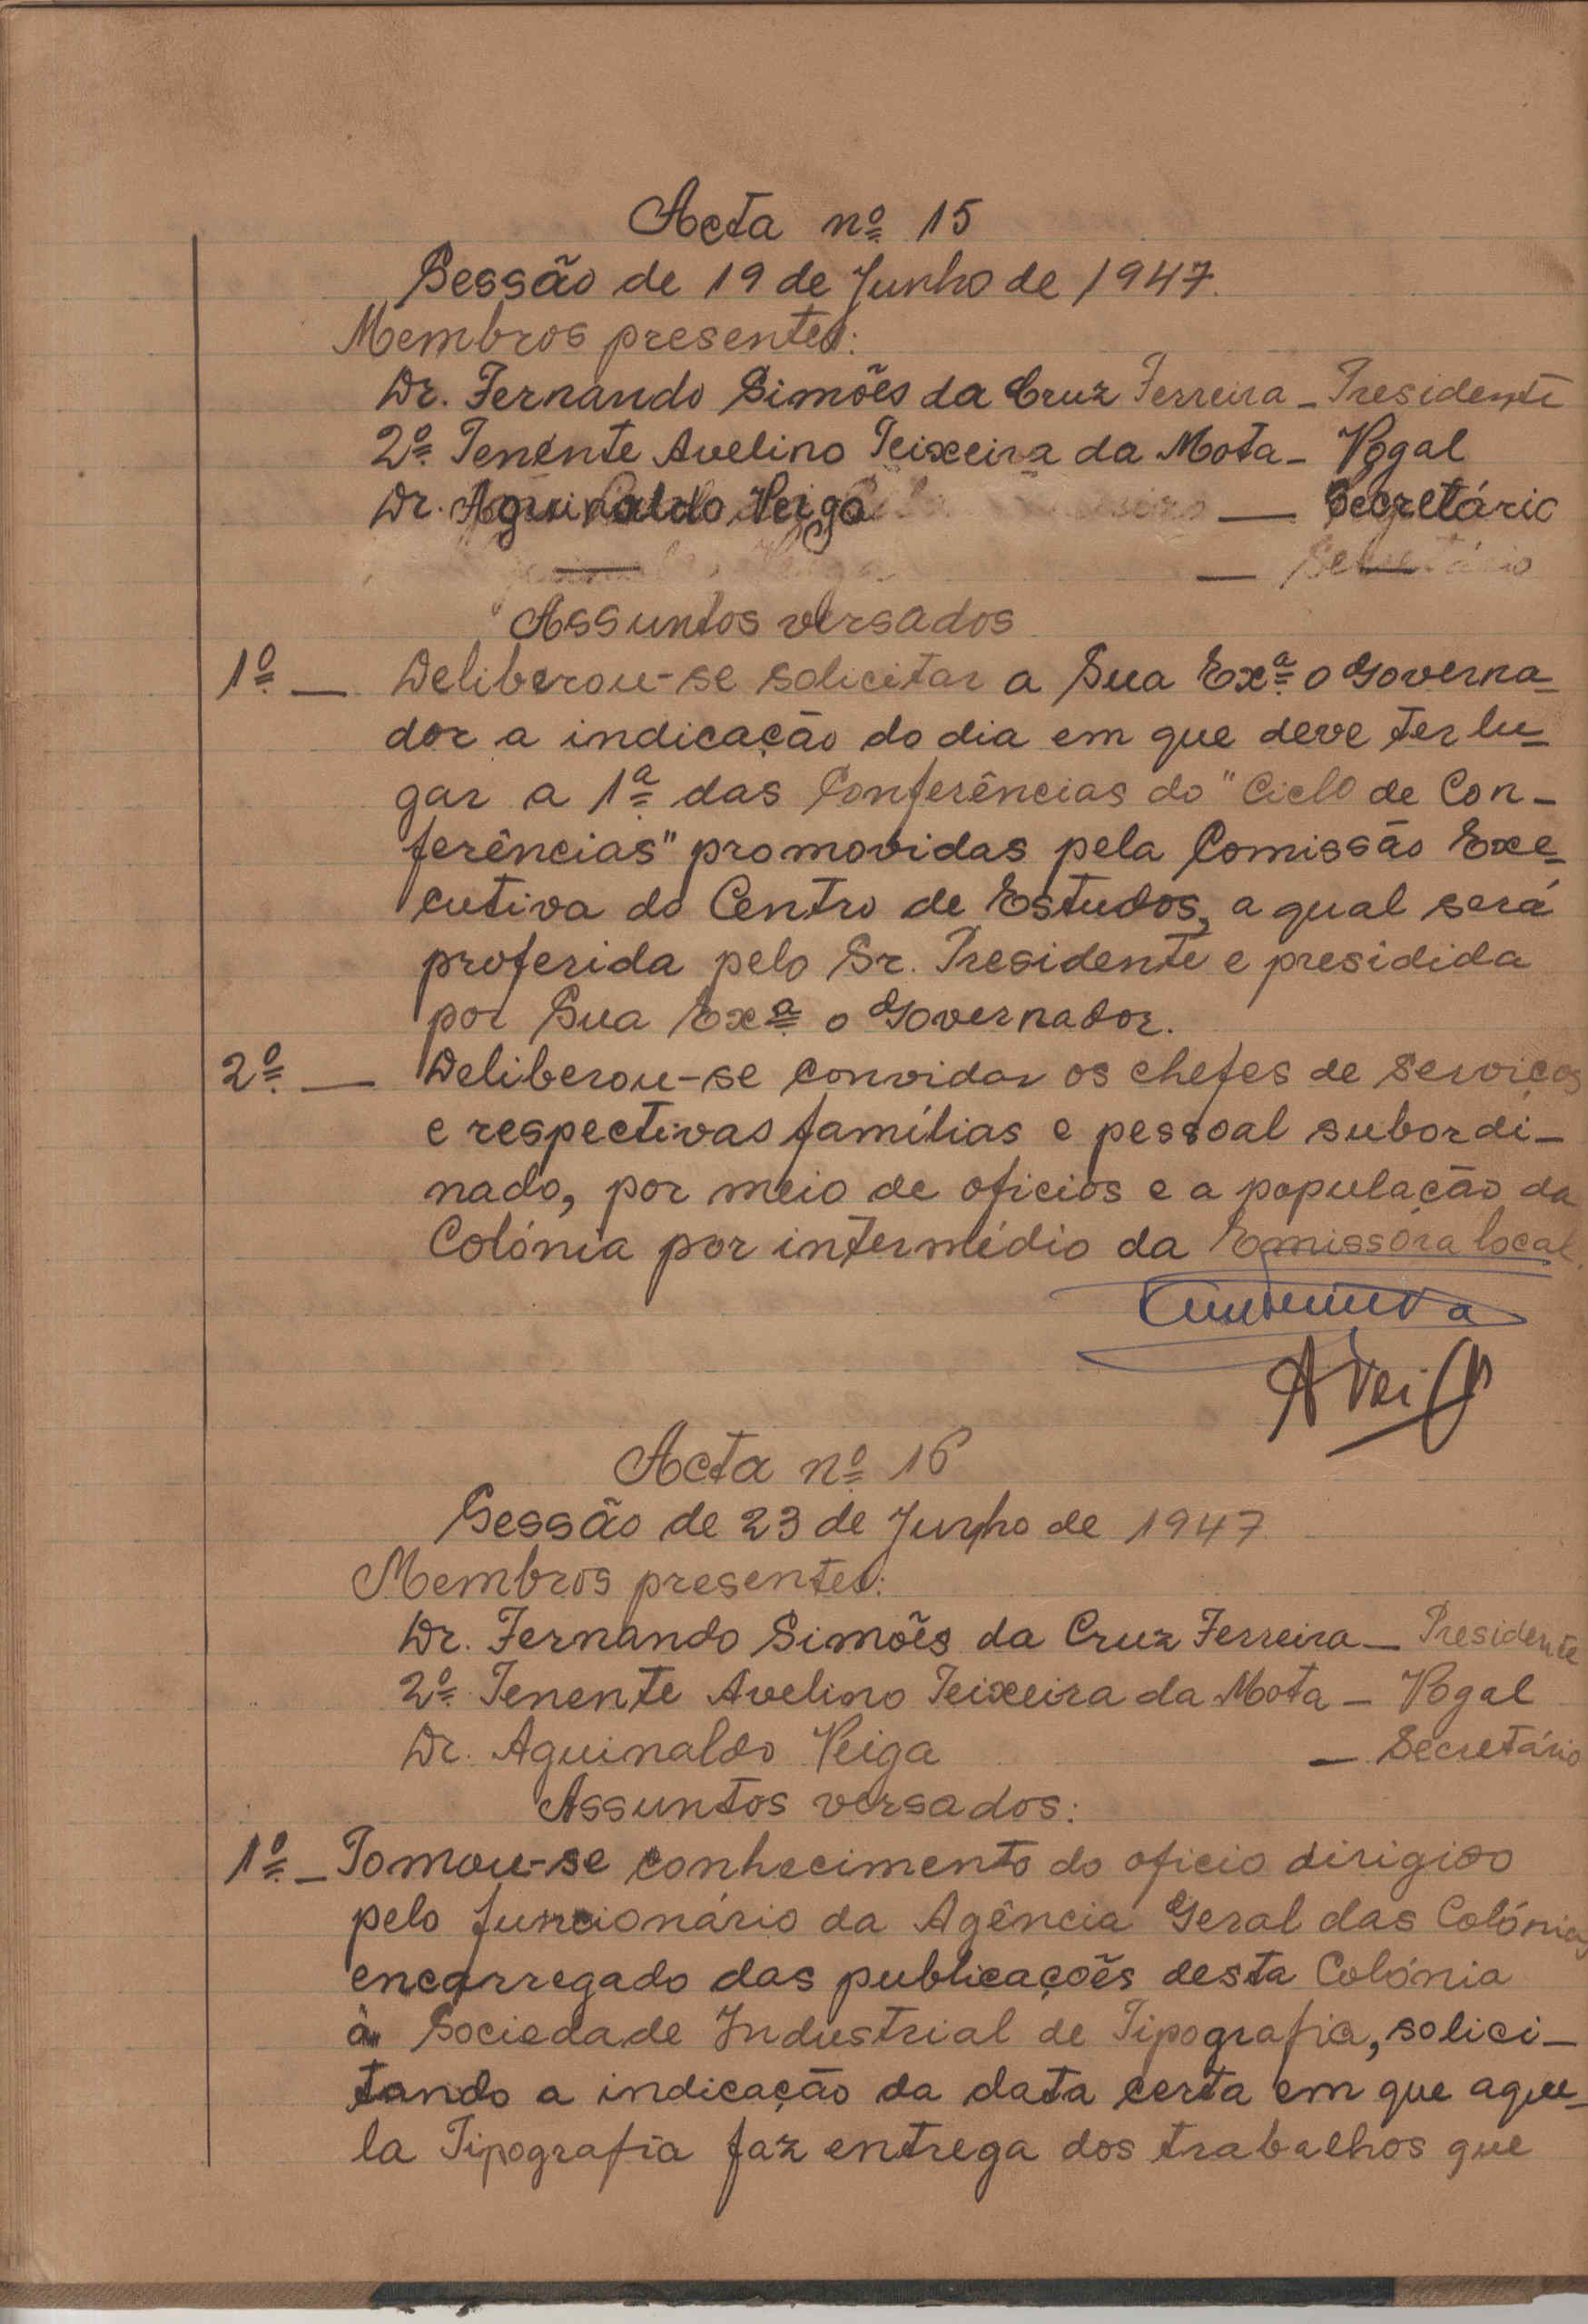 Acta nº 15
Sessão de 19 de Junho de 1947.
Membros presentes:
Dr. Fernando Simões da Cruz Ferreira – Presidente
2º Tenente Avelino Teixeira da Mota – Vogal
Dr. Aguinaldo Veiga — Secretário
— Secretário
Assuntos versados
1º — Deliberou-se solicitar a Sua Exª o Governa-
dor a indicação do dia em que deve ter lu-
gar a 1ª das Conferências do "Ciclo de Con-
ferências" promovidas pela Comissão Exe-
cutiva do Centro de Estudos, a qual será
proferida pelo Sr. Presidente e presidida
por Sua Exª o Governador.
2º — Deliberou-se convidar os chefes de serviços
e respectivas famílias e pessoal subordi-
nado, por meio de oficios e a população da
Colónia por intermédio da Emissora local.
AVeiga
Acta nº 16
Sessão de 23 de Junho de 1947
Membros presentes:
Dr. Fernando Simões da Cruz Ferreira – Presidente
2º Tenente Avelino Teixeira da Mota – Vogal
Dr. Aguinaldo Veiga – Secretário
Assuntos versados:
1º – Tomou-se conhecimento do oficio dirigido
pelo funcionário da Agência Geral das Colónias
encarregado das publicações desta Colónia
à Sociedade Industrial de Tipografia, solici-
tando a indicação da data certa em que aque-
la Tipografia faz entrega dos trabalhos que